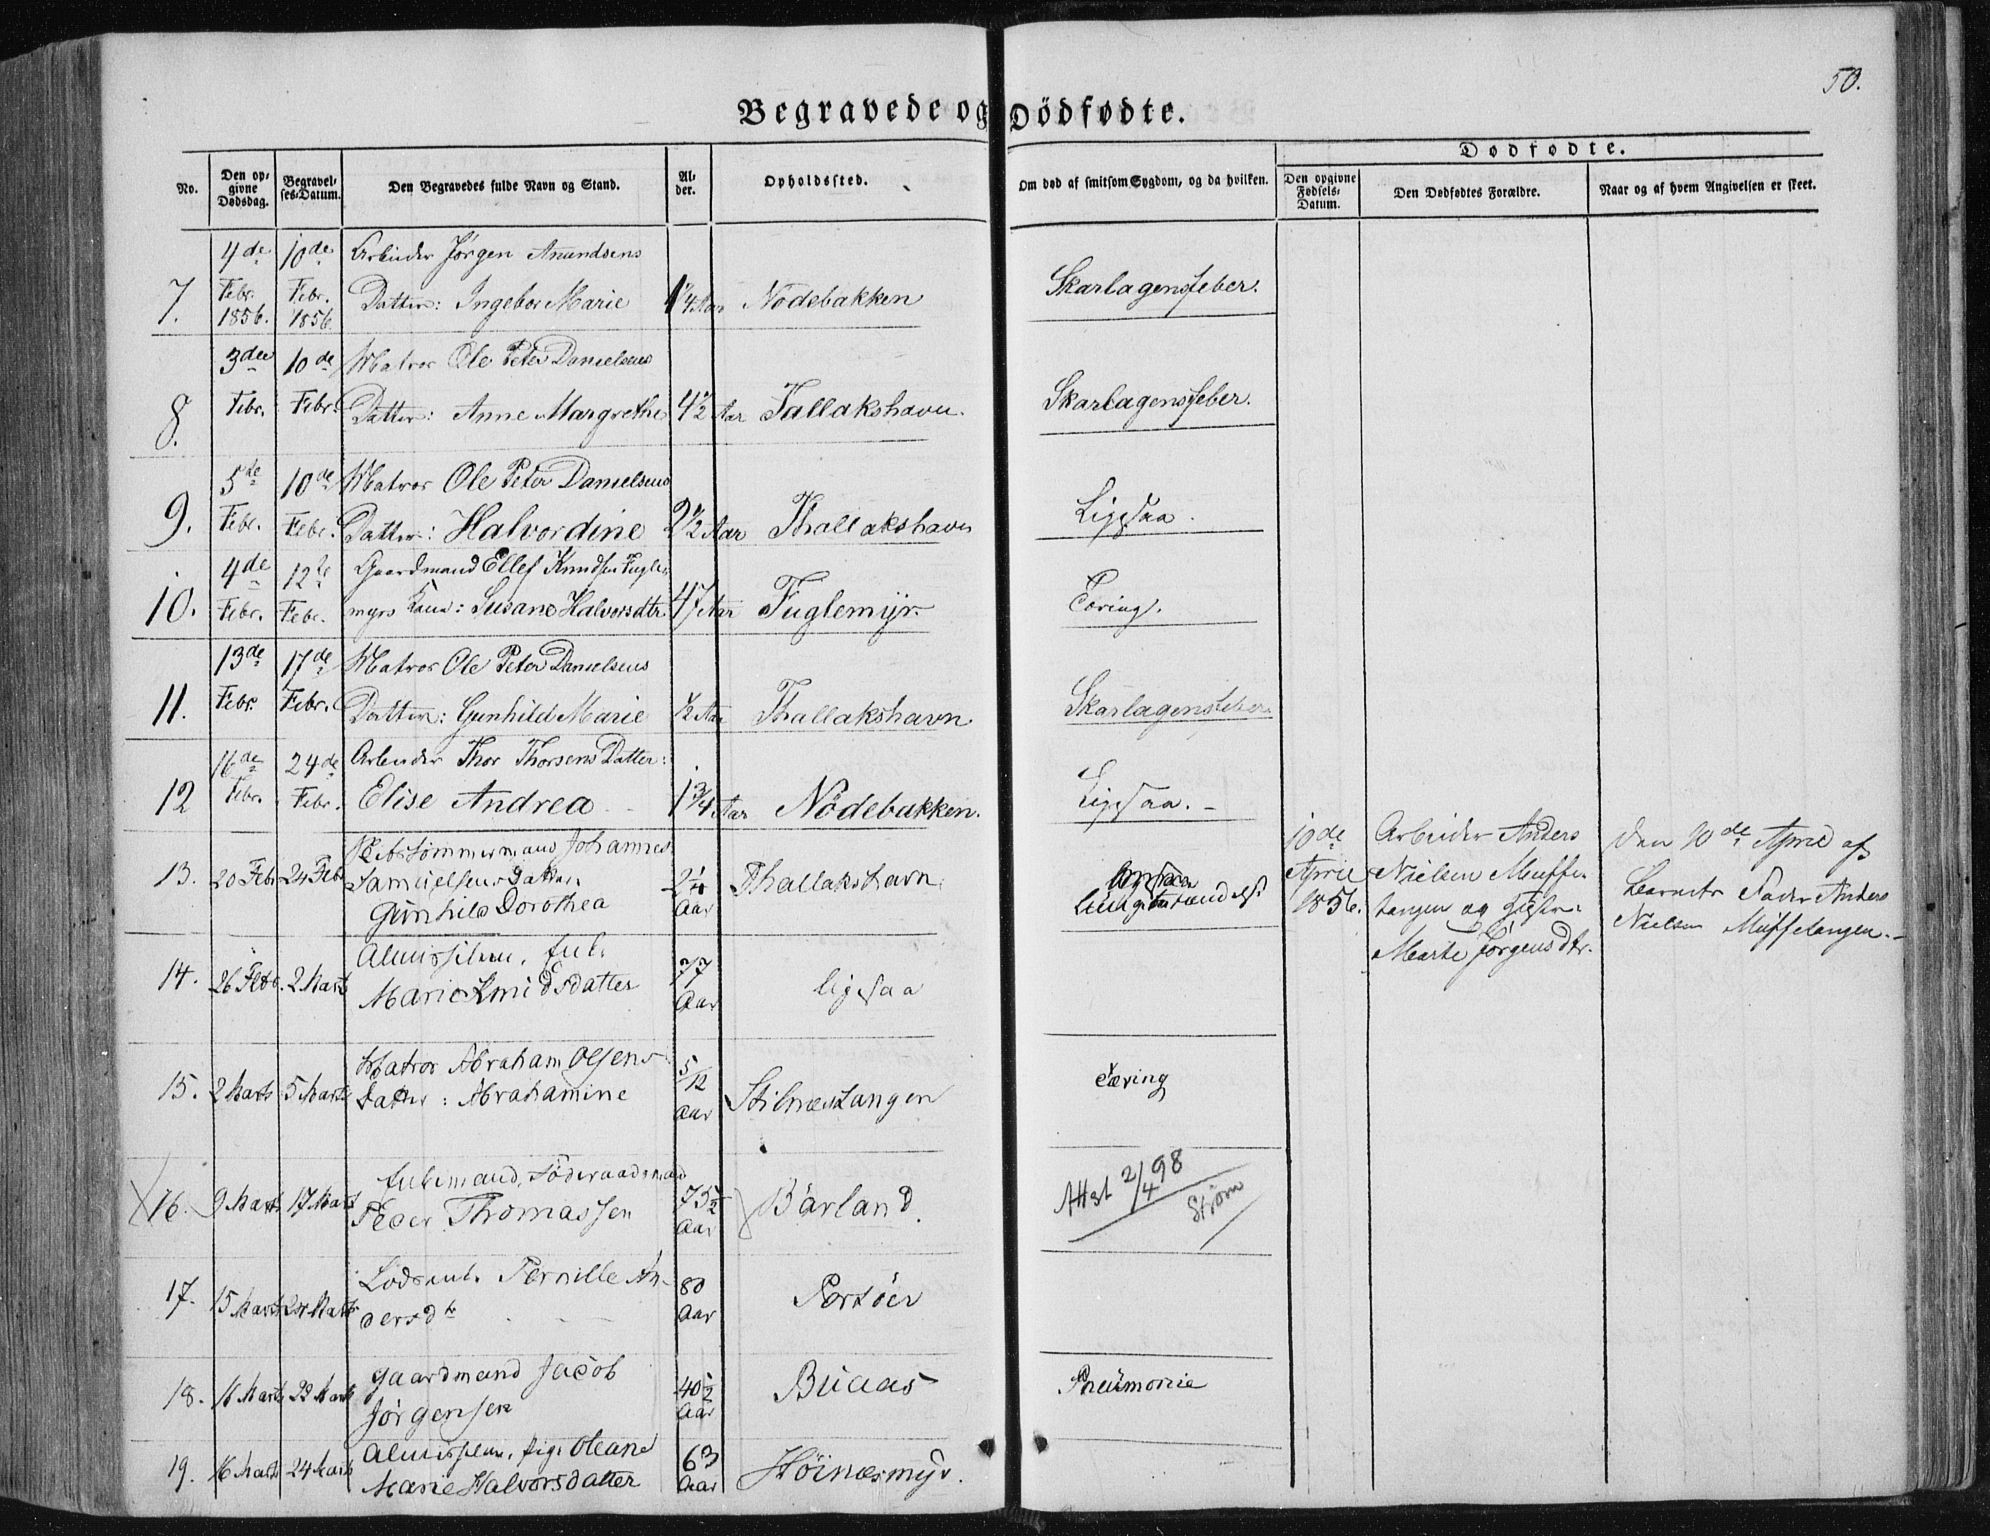 50.
Begravede og Dödfødte.
Dødfødte.
No.
Den opgivne Dødsdag.
Begravelses-Datum.
Den Begravedes fulde Navn og Stand.
Alder.
Opholdssted.
Om død af smitsom Sygdom, og da hvilken.
Den opgivne Fødsels-Datum.
Den Dødfødtes Forældre.
Naar og af hvem Angivelsen er skeet.
4de 10de Arbeider Jörgen Anundsens
7. Febr. 1856. Febr. 1856. Datter: Ingebor Marie 1/4 Aar Nödebakken Skarlagensfeber.
3die 10de Matros Ole Peter Danielsens
8. Febr. Febr. Datter: Anne Margrethe 4 1/2 Aar Tallakshavn. Skarlagensfeber.
5te 10de Matros Ole Peter Danielsens
9. Febr. Febr. Datter: Halvordine 2 1/2 Aar Thallakshavn Ligesaa.
4de 12te Gaardmand Ellef Knudsen Fugle-
10. Febr. Febr. myrs Kone: Susane Halvorsdtr. 47 Aar Fuglemyr. Tæring.
13de 17de Matros Ole Peter Danielsens
11. Febr. Febr. Datter: Gunhild Marie 1/2 Aar Thallakshavn Skarlagensfeber.
16de 24de Arbeider Thor Thorsens Datter:
12 Febr. Febr. Elise Andrea 1 3/4 Aar Nödebakken. Ligesaa. -
Tømmermand Johannes
13. 20 Feb 24 Feb Samuelsens Datter
Gunhild Dorothea Aar Thallakshavn
10de April 1856. Arbeider Anders
Nielsen Muffe-
tangen og
Marte Jörgensdtr.
Den 10de April af
Barnets Fader Anders
Nielsen Müffetangen. -
14. 26 Feb. 2 Marts Almisselem,
Marie Knudsdatter 77 Aar ligesaa
15. 2 Marts 5 Marts Matros Abraham Olsens
Datter: Abrahamine 5/12 Aar Stilnestangen Tæring
Föderaadsmand
16. 9 Marts 17 Marts Peder Thomassen 75 1/2 Aar Bärland. Attst 2/4 98
Strøm
17. 15 Marts 24 Marts Pernille An-
dersdtr 80 Aar Portöer
18. 16 Marts 22 Marts Gaardmand Jacob
Jörgensen 40 1/2 Aar Buaas Pneumonie
19. 16 Marts 24 Marts Almisselem, Pige Oleane
Marie Halvorsdatter 63 Aar Höinesmyr.